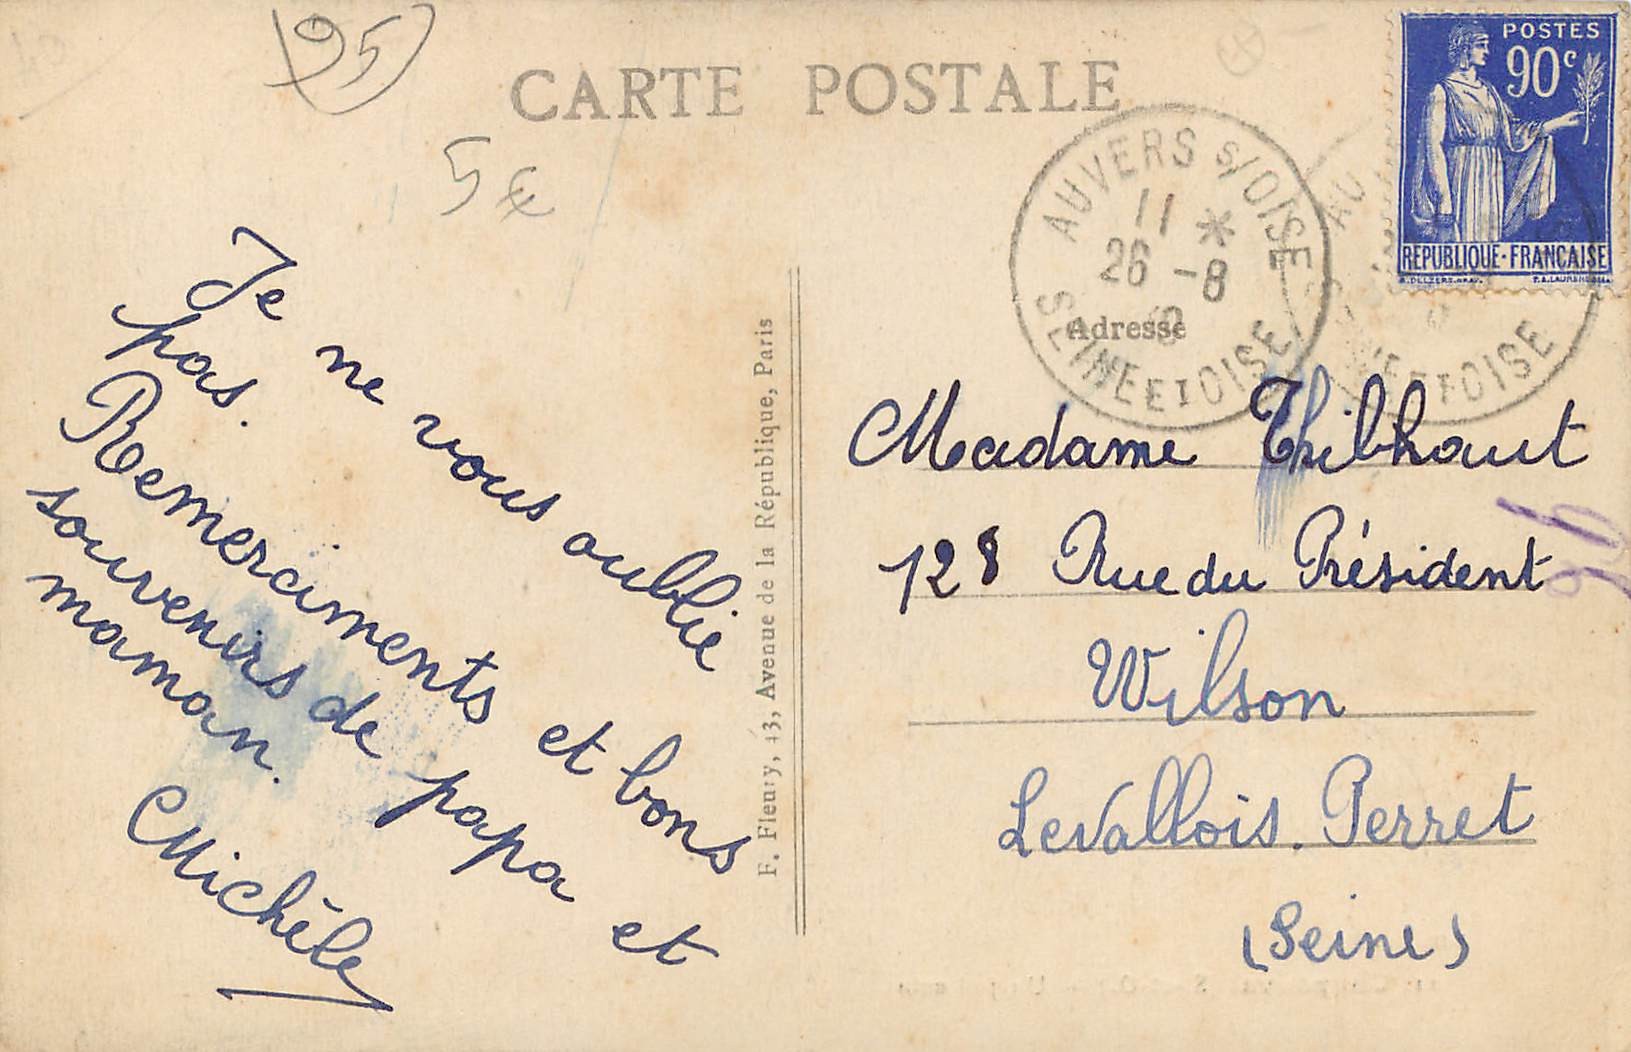 95
CARTE POSTALE
5€
POSTES
90c
REPUBLIQUE-FRANCAISE
AUVERS s/OISE
11 *
26 -8
SEINE ET OISE
Adresse
Je ne vous oublie
pas.
Remerciments et bons
souvenirs de papa et
maman.
Michèle
F. Fleury, 43, Avenue de la République, Paris
Madame Thibhaut
128 Rue du Président
Wilson
Levallois. Perret
(Seine)